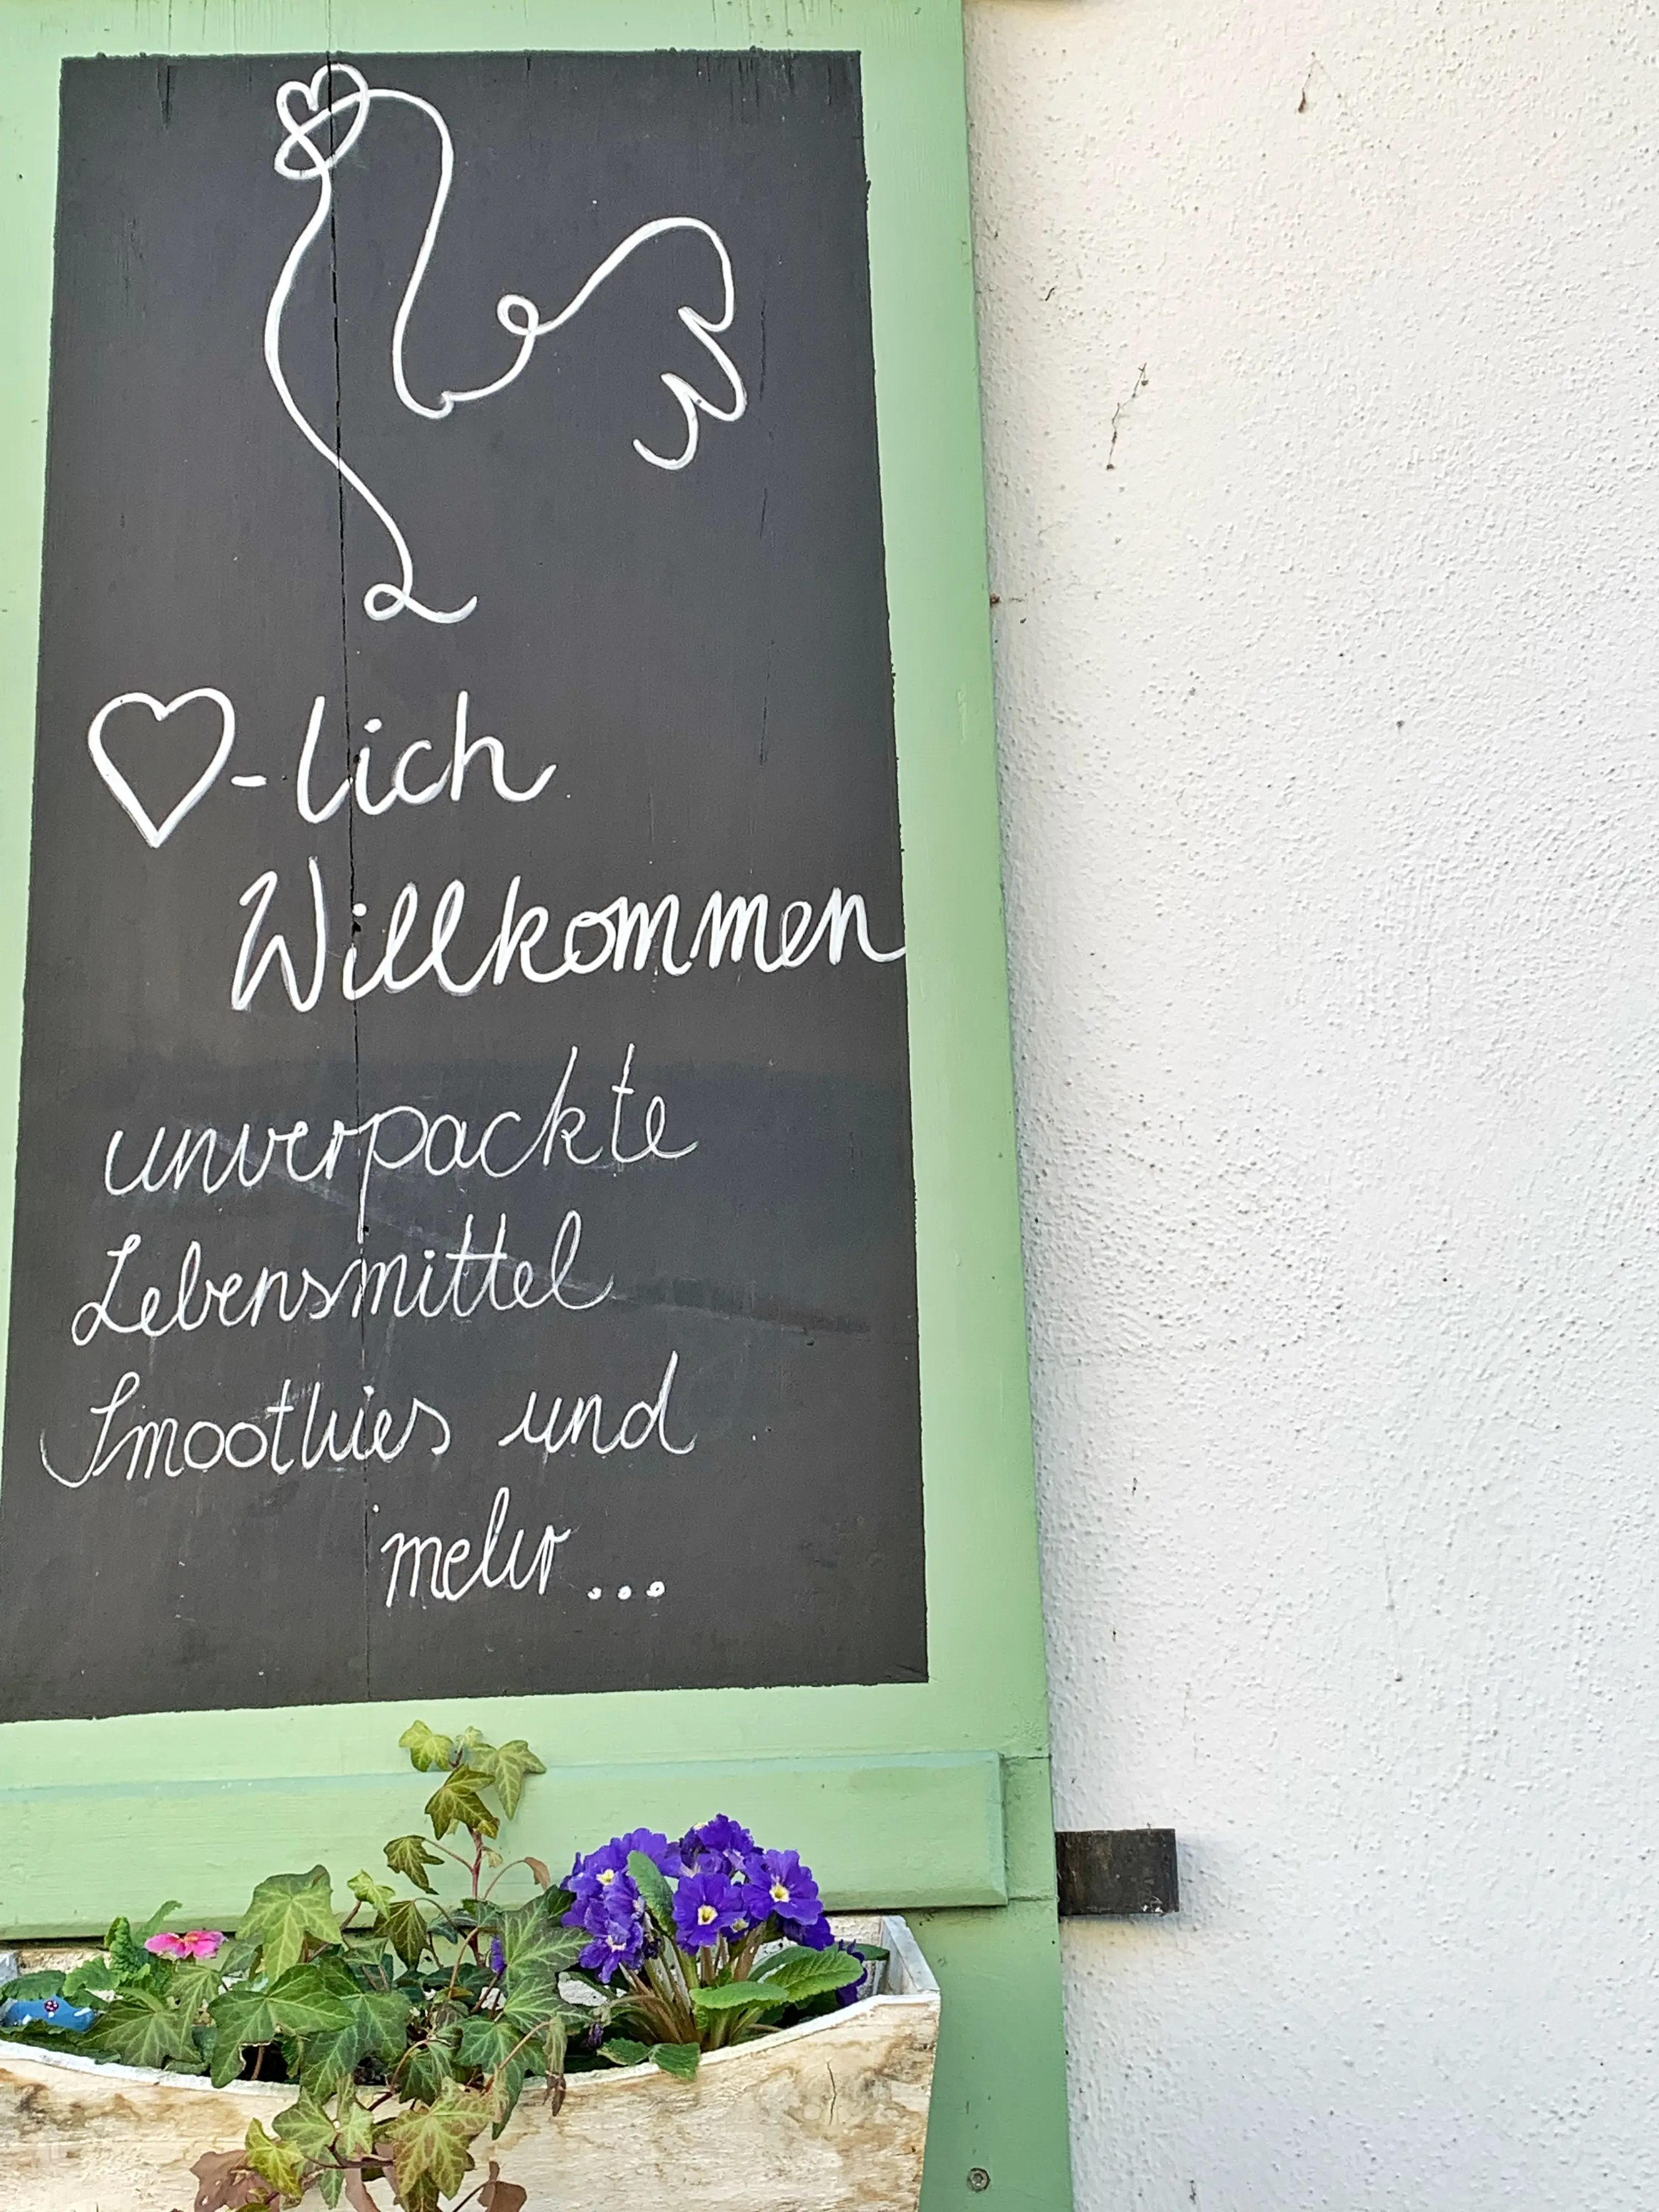 ♡-lich
Willkommen
unverpackte
Lebensmittel
Smoothies und
mehr...